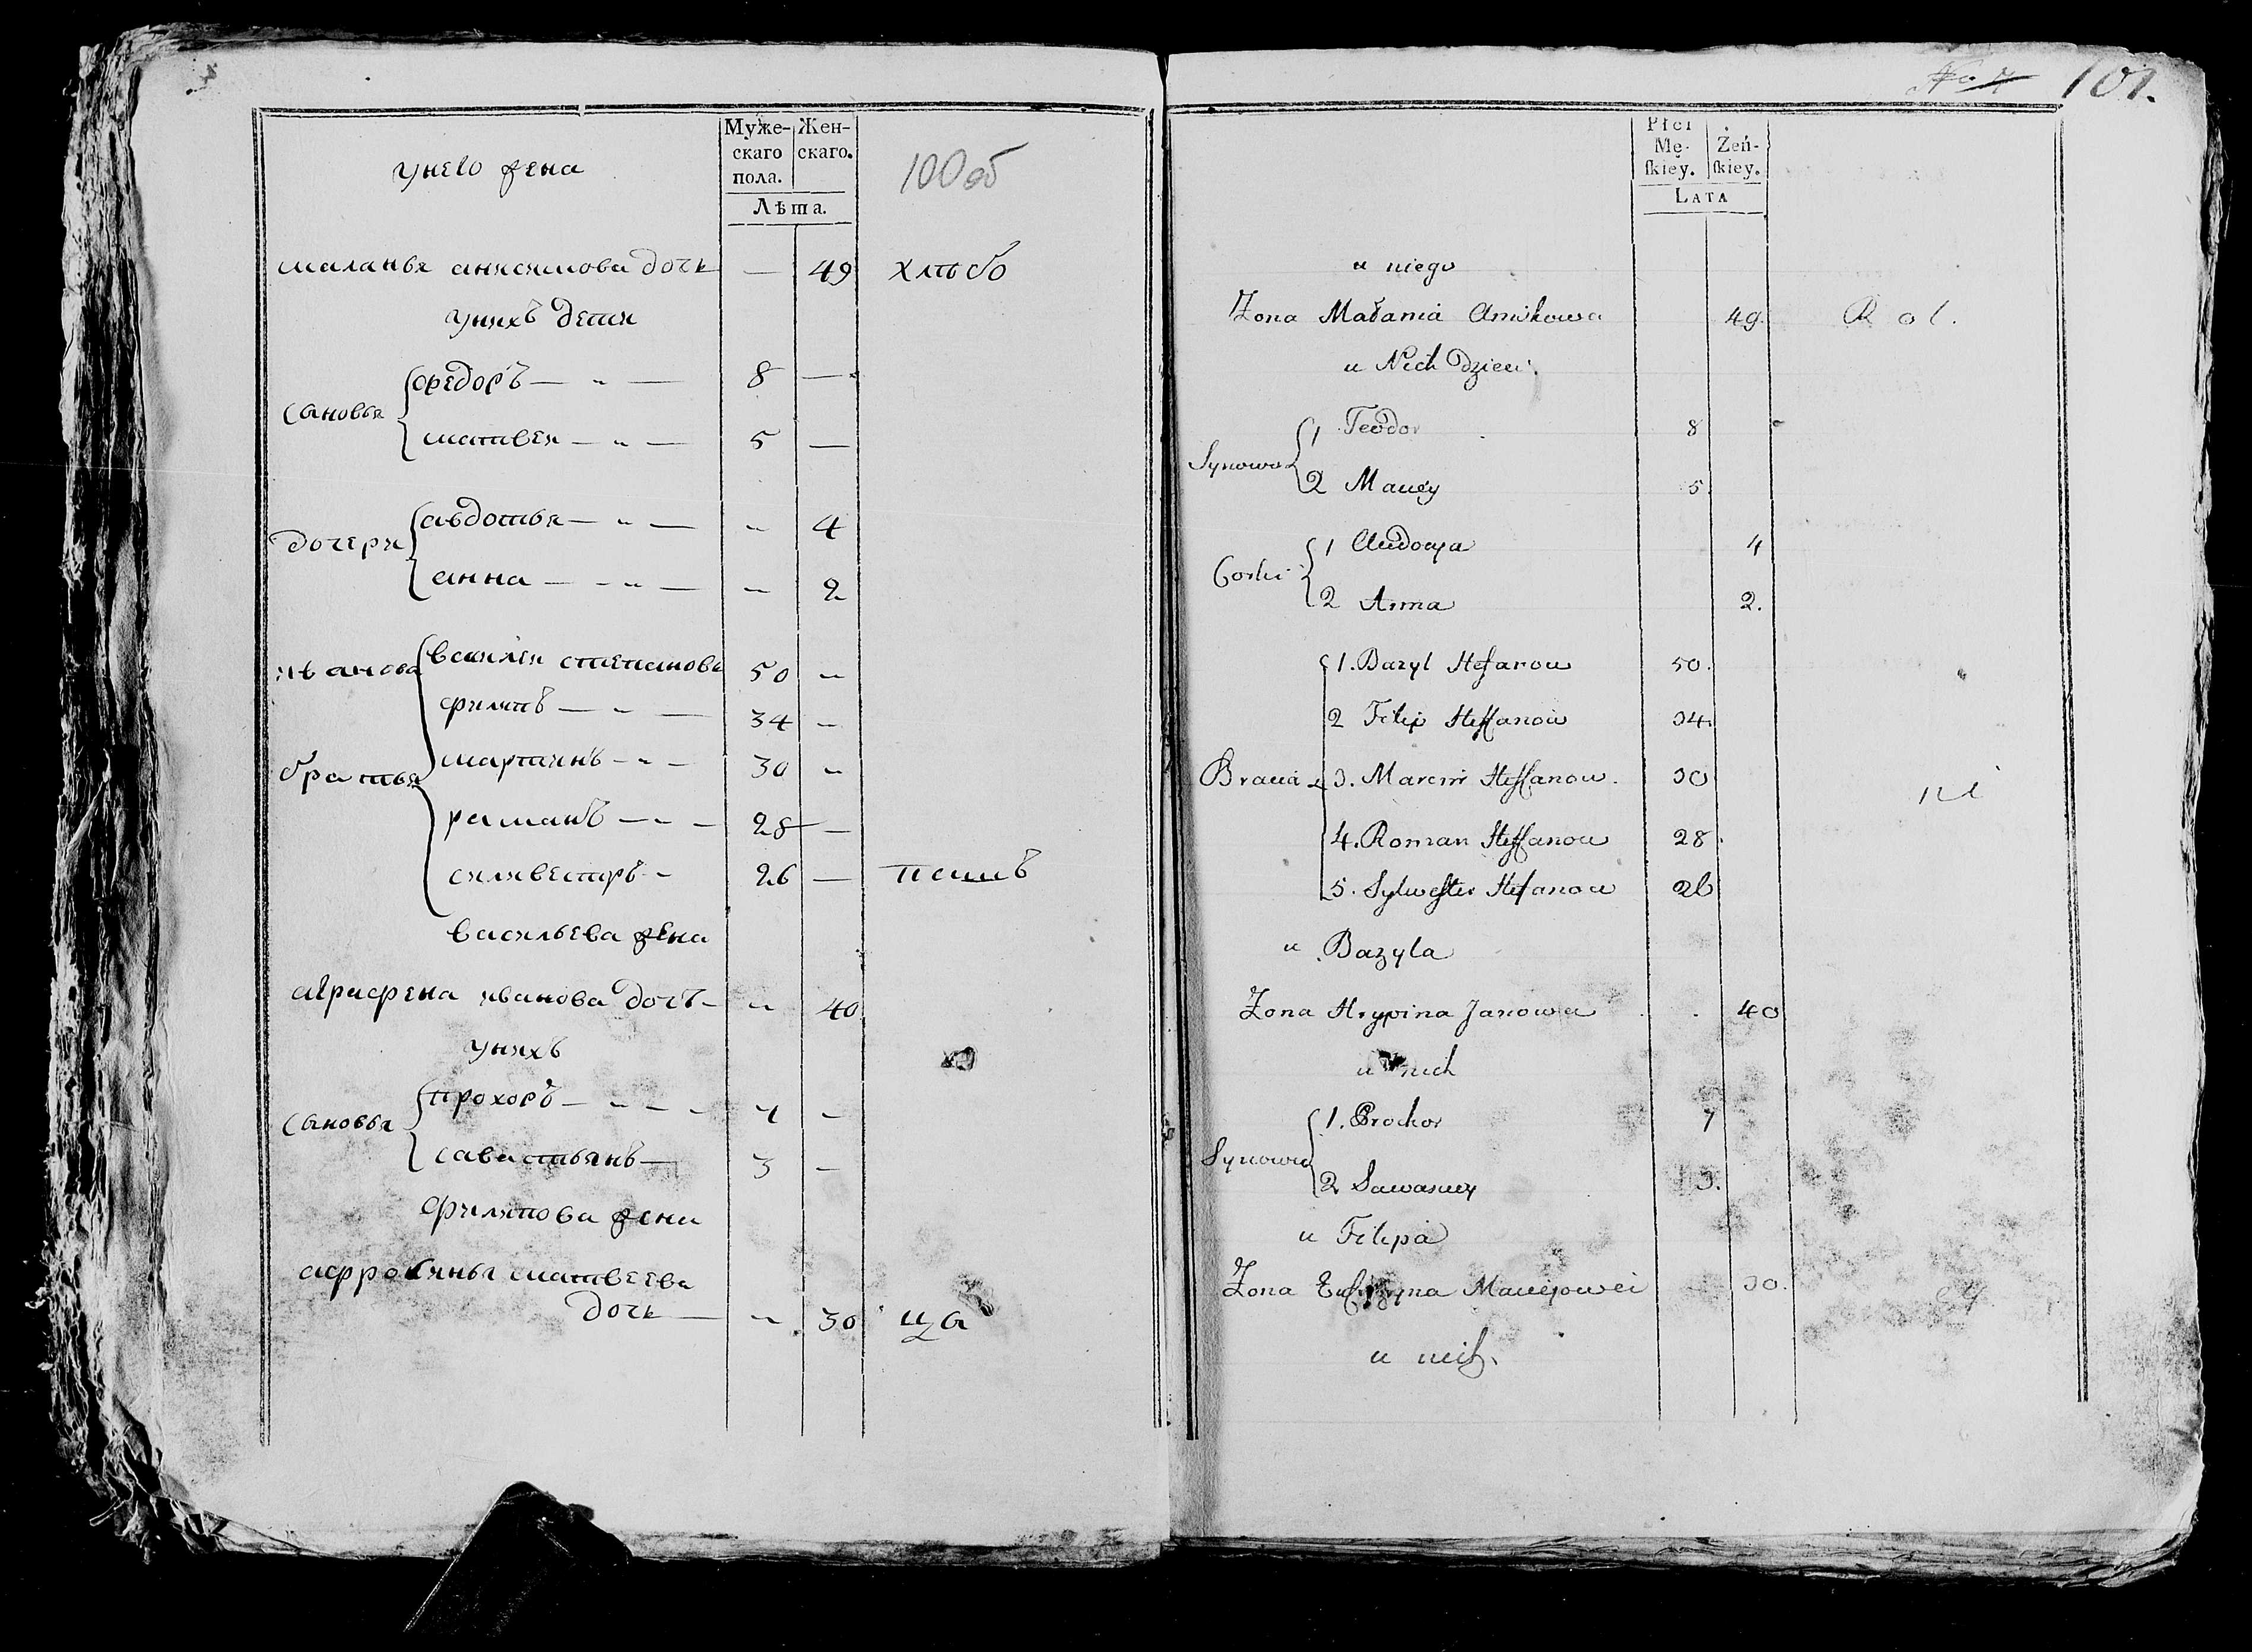 Муже-
скаго
пола.
Жен-
скаго.
Лѣта.
унево жена
100об
маланья анисимова дочь — 49 хлѣбо
унихъ дети
сановья
федоръ — „ — 8 —
матвеи — „ — 5 —
дочери
авдотья — „ — „ 4
анна — „ — „ 2
иванова братья
василеи степановъ 50 „
филипъ — „ — 34 „
мартинъ — „ — 30 „
раманъ — „ — 28 —
силивестръ — 26 — пашъ
васильева жена
аграфена иванова дочь — „ 40
унихъ
сановья
прохоръ — „ — „ 7 —
савастьянъ — 3 —
филипова жена
матвеева
дочь — „ 30 ца
101.
Płci
Mę-
ſkiey.
Żeń-
ſkiey.
Lata
u niego
Żona Małania Anikowa 49. Rol.
u Nich Dzieci.
Synowie
1 Teodor 8
2 Maciey 5.
Corki
1 Audocya 4
2 Anna 2.
Bracia
1. Bazyl Stefanow 50.
2 Filip Steffanow 34.
3. Marcin Steffanow. 30
4. Roman Steffanow 28.
5. Sylwester Stefanow 26
u Bazyla
Żona Hrypina Janowa 40
u nich
Synowie
1. Prochor 7
2 Sawastey 3.
u Filipa
Żona Maciejowa 30.
u nich.